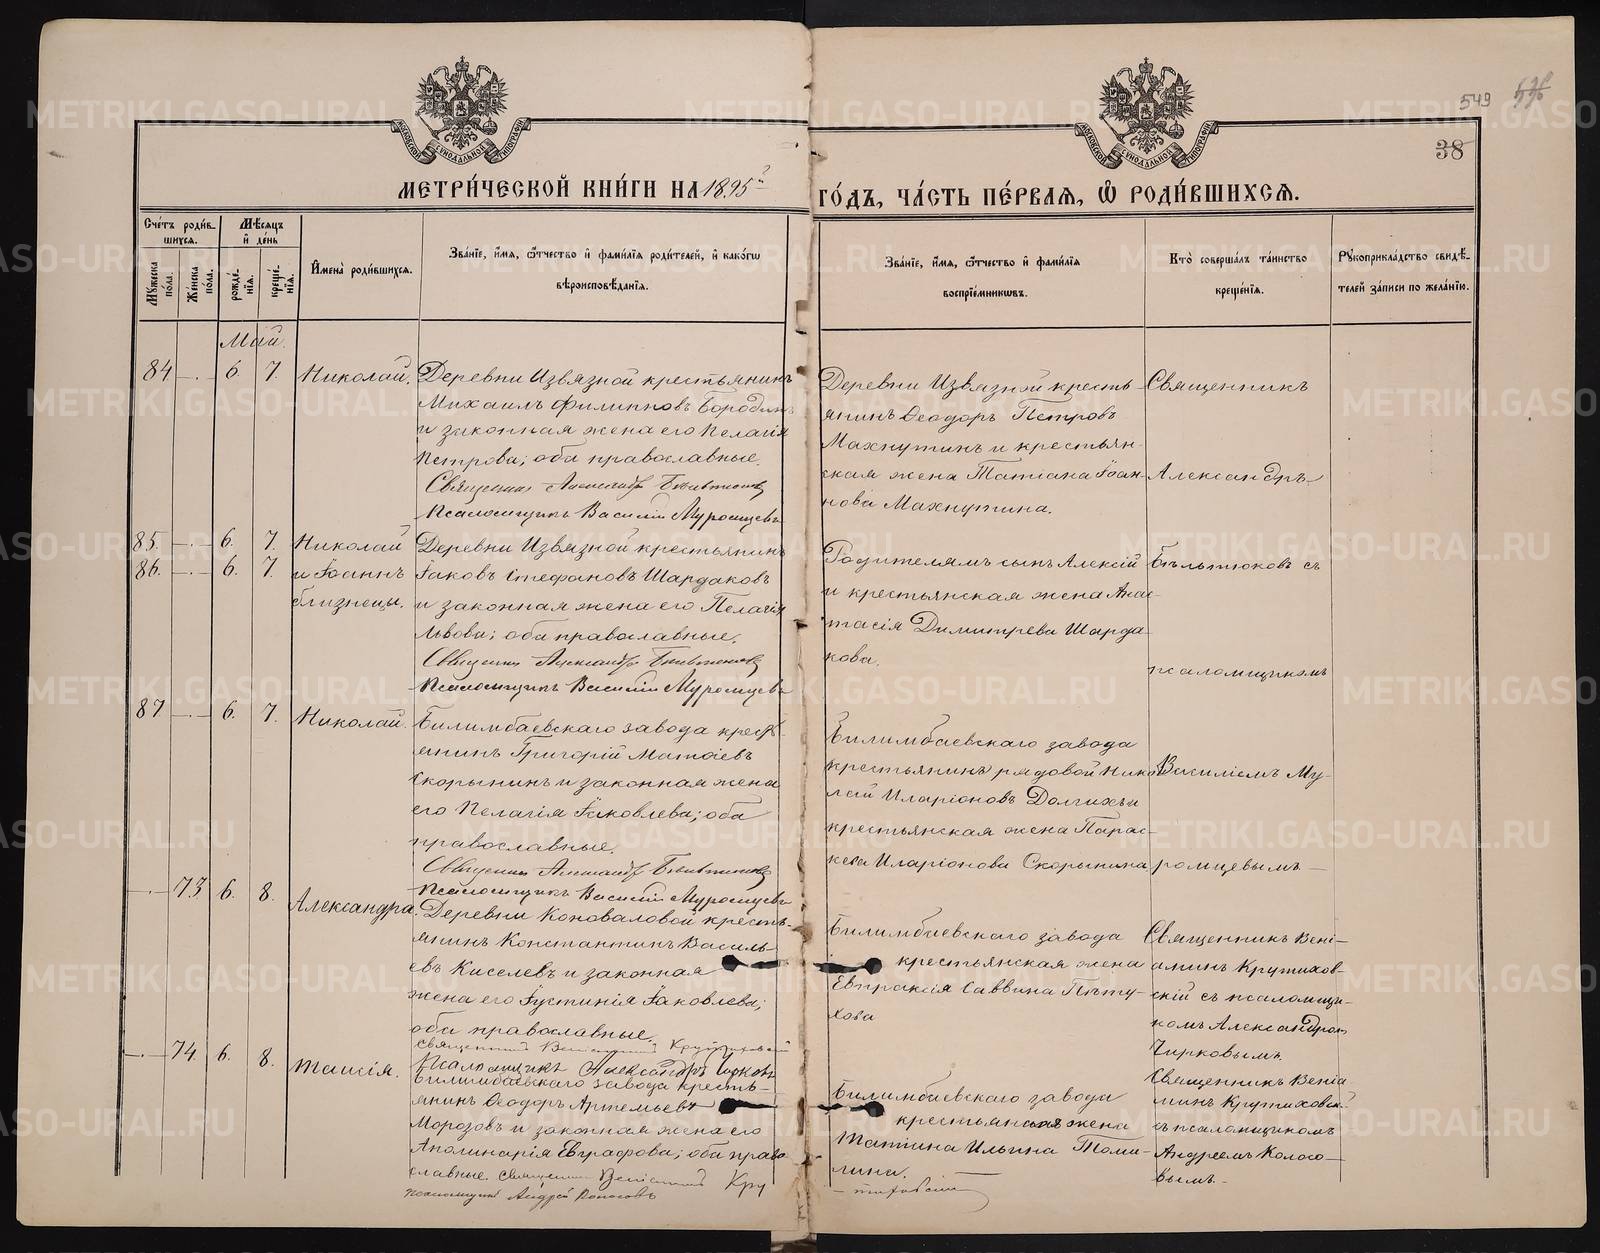 549
38
МЕТРИ́ЧЕСКОЙ КНИ́ГИ НА 1895й
ГО́ДЪ, ЧА́СТЬ ПЕ́РВАЯ, Ѡ РОДИ́ВШИХСЯ.
Сче́тъ роди́в-
шихся.
Мѣ́сяцъ
и де́нь
Му́жеска по́ла.
Же́нска по́ла.
рожде́-нїя.
креще́-нїя.
Имена̀ роди́вшихся.
Зва́нїе, и́мя, ѻ́тчество и фами́лїя роди́телей, и како́гѡ
вѣроисповѣ́данїя.
Зва́нїе, и́мя, ѻ́тчество и фами́лїя
воспрїе́мникѡвъ.
Кто̀ соверша́лъ та́инство
креще́нїя.
Рꙋкоприкла́дство свидѣ́-
телей за́писи по жела́нїю.
Май.
84 — 6. 7. Николай.
Деревни Извязной крестьянинъ
Михаилъ Филипповъ Бородинъ
и законная жена его Пелагія
Петрова; оба православные.
Священникъ Александръ Бѣльтюковъ
Псаломщикъ Василій Муромцевъ
Деревни Извязной кресть-
янинъ Ѳеодоръ Петровъ
Махнутинъ и крестьян-
ская жена Татіана Іоан-
нова Махнутина.
Священникъ
Александръ
85. — 6. 7. Николай
86. — 6. 7. и Іоаннъ
близнецы.
Деревни Извязной крестьянинъ
Іаковъ Стефановъ Шардаковъ
и законная жена его Пелагія
Львова; оба православные.
Священникъ Александръ Бѣльтюковъ
Псаломщикъ Василій Муромцевъ
Родителямъ сынъ Алексій
и крестьянская жена Анас-
тасія Димитрева Шарда-
кова.
Бѣльтюковъ съ
псаломщикомъ
87 — 6. 7. Николай.
Билимбаевскаго завода кресть-
янинъ Григорій Матѳіевъ
Скорынинъ и законная жена
его Пелагія Іаковлева; оба
православные.
Священникъ Александръ Бѣльтюковъ
Псаломщикъ Василій Муромцевъ
Билимбаевскаго завода
крестьянинъ рядовой Нико-
лай Иларіоновъ Долгихъ и
крестьянская жена Парас-
кева Иларіонова Скорынина
Василіемъ Му-
ромцевымъ —
— 73 6. 8. Александра.
Деревни Коноваловой кресть-
янинъ Константинъ Василь-
евъ Киселевъ и законная
жена его Іустинія Іаковлева;
оба православные.
Священникъ Веніаминъ Крутиховскій
Псаломщикъ Александръ Чирковъ
Билимбаевскаго завода
крестьянская жена
Евпраксія Саввина Пѣту-
хова
Священникъ Вені-
аминъ Крутихов-
скій съ псаломщи-
комъ Александромъ
Чирковымъ.
— 74 6. 8. Таисія.
Билимбаевскаго завода кресть-
янинъ Ѳеодоръ Артемьевъ
Морозовъ и законная жена его
Аполинарія Евграфова; оба право-
славные. Священникъ Веніаминъ Кру
тиховскій
псаломщикъ Андрей Колосовъ
Билимбаевскаго завода
крестьянская жена
Татіана Ильина Томи-
лина.
Священникъ Веніа-
минъ Крутиховскій
съ псаломщикомъ
Андреемъ Колосо-
вымъ.
METRIKI.GASO-URAL.RU